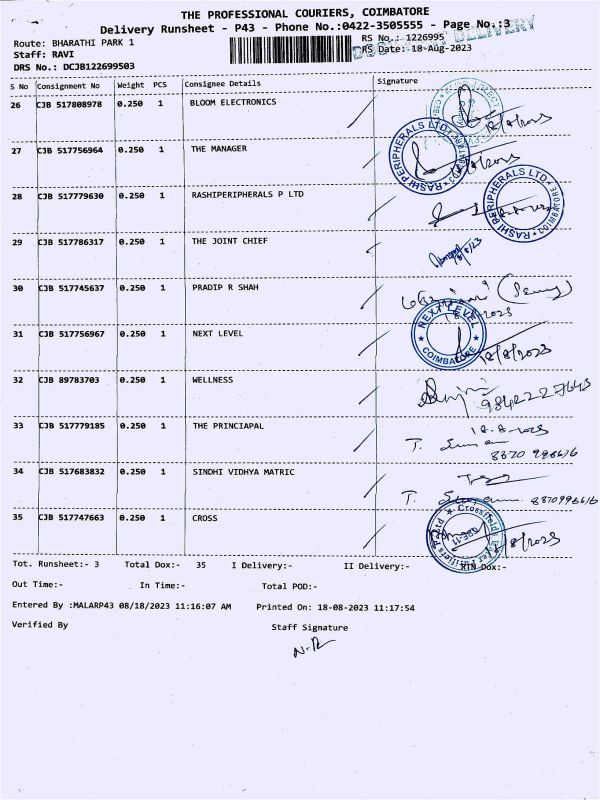 THE PROFESSIONAL COURIERS, COIMBATORE
Delivery Runsheet - P43 - Phone No.:0422-3505555 - Page No.:3
DELIVERY
Route: BHARATHI PARK 1
RS No.: 1226995
Staff: RAVI
RS Date: 18-Aug-2023
DRS No.: DCJB122699503
S No Consignment No Weight PCS Consignee Details Signature
26 CJB 517808978 0.250 1 BLOOM ELECTRONICS
27 CJB 517756964 0.250 1 THE MANAGER
RASHI PERIPHERALS LTD
28 CJB 517779630 0.250 1 RASHIPERIPHERALS P LTD
RASHI PERIPHERALS LTD. COIMBATORE
29 CJB 517786317 0.250 1 THE JOINT CHIEF
30 CJB 517745637 0.250 1 PRADIP R SHAH
31 CJB 517756967 0.250 1 NEXT LEVEL
NEXT LEVEL COIMBATORE
18/8/2023
32 CJB 89783703 0.250 1 WELLNESS
9842227643
33 CJB 517779185 0.250 1 THE PRINCIAPAL
18-8-2023
34 CJB 517683832 0.250 1 SINDHI VIDHYA MATRIC
35 CJB 517747663 0.250 1 CROSS
Tot. Runsheet:- 3 Total Dox:- 35 I Delivery:- II Delivery:- RTN Dox:-
Out Time:- In Time:- Total POD:-
Entered By :MALARP43 08/18/2023 11:16:07 AM Printed On: 18-08-2023 11:17:54
Verified By Staff Signature
N-R